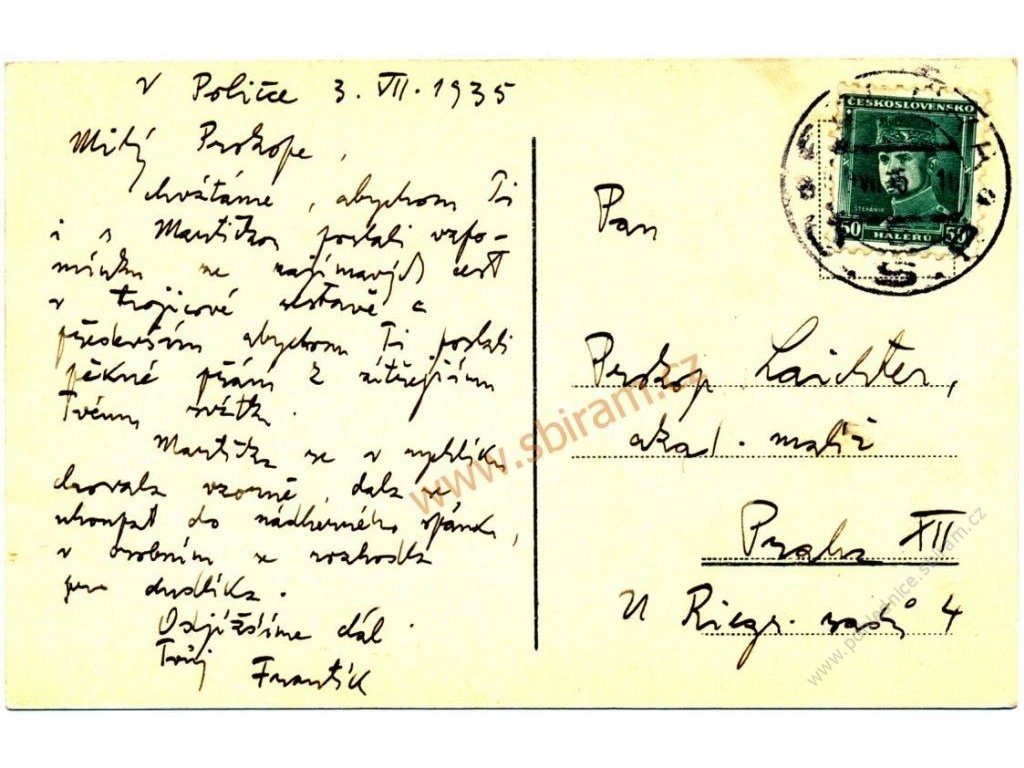 V Poličce 3. VII. 1935
Milý Prokope,
chvátáme, abychom Ti
i s Martičkou poslali vzpo-
mínku ze zajímavých cest
v trojicové sestavě a
především abychom Ti poslali
pěkné přání k zítřejšímu
Tvému svátku.
Martička se v rychlíku
chovala vzorně, dala se
uhoupat do nádherného spánku,
v osobním se rozhodla
pro dudlíka.
Odjíždíme dál.
Tvůj
Frantík
ČESKOSLOVENSKO
ŠTEFÁNIK
50 HALÉŘŮ 50
Pan
Prokop Laichter,
akad. malíř
Praha XII
U Riegr. sadů 4
www.sbiram.cz
www.pohlednice.sbiram.cz